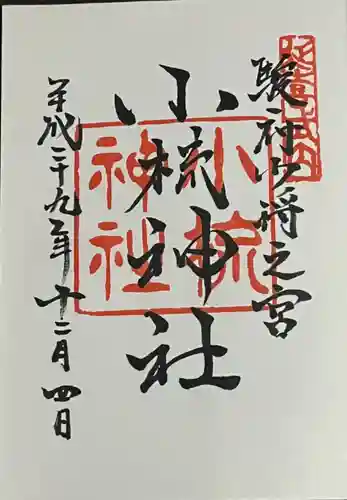 駿神少将之宮
小梳神社
小梳
神社
平成二十九年十二月四日